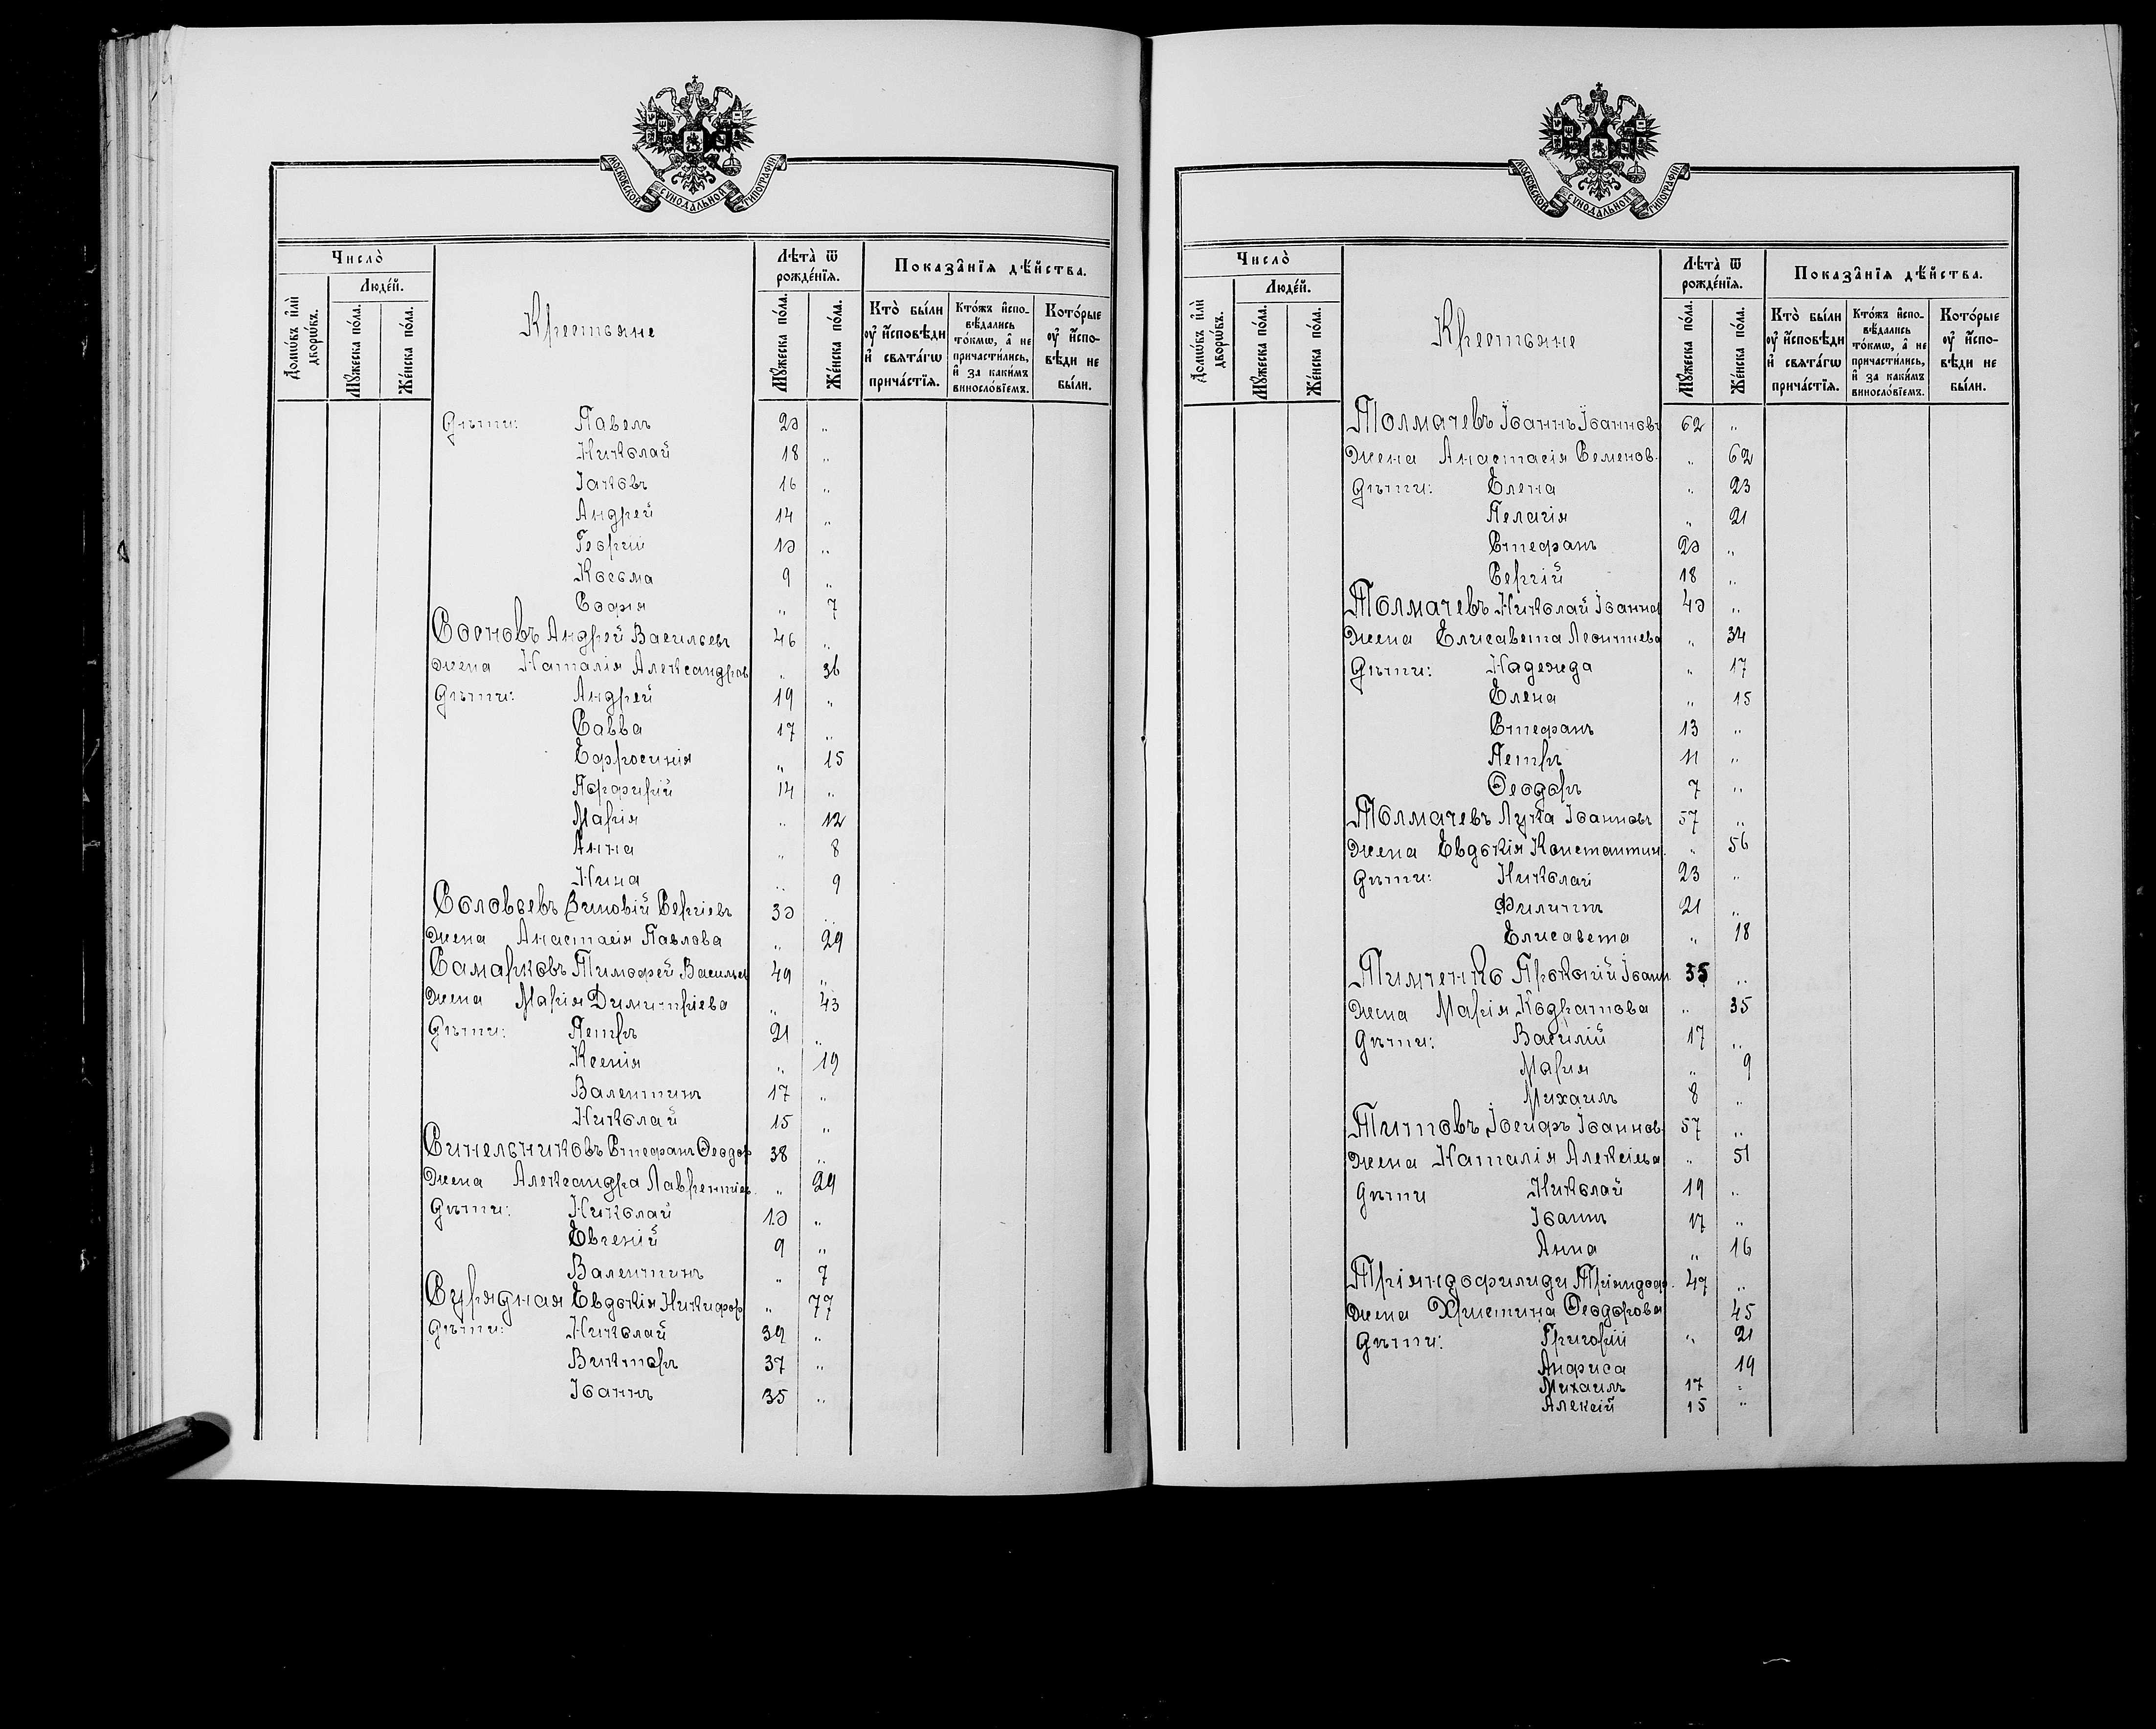 МОСКОВСКОЙ СѴНОДАЛЬНОЙ ТИПОГРАФІИ
Число̀
Домѡ́въ и҆лѝ дворѡ́въ.
Люде́й.
Мꙋ́жеска по́ла.
Же́нска по́ла.
Крестьяне
Лѣ́та ѿ рожде́нїѧ.
Мꙋ́жеска по́ла.
Же́нска по́ла.
Показа̑нїѧ дѣ́йства.
Кто̀ бы́ли оу҆ и҆сповѣди и҆ свѧта́гѡ прича́стїѧ.
Кто́жъ и҆спо-вѣ́дались то́кмѡ, а҆ не причасти́лись, и҆ за каки́мъ винословїемъ.
Кото́рые оу҆ и҆спо-вѣди не бы́ли.
Дѣти: Павелъ 20 "
Николай 18 "
Іаковъ 16 "
Андрей 14 "
Георгій 10 "
Косьма 9 "
Софія " 7
Сосновъ Андрей Васильевъ 46 "
жена Наталія Александров " 36
Дѣти: Андрей 19 "
Савва 17 "
Ефросинія " 15
Порфирій 14 "
Марія " 12
Анна " 8
Нина " 9
Соловьевъ Зиновій Сергіевъ 30 "
жена Анастасія Павлова " 29
Самарковъ Тимофей Васильев 49 "
жена Марія Димитріева " 43
Дѣти: Петръ 21 "
Ксенія " 19
Валентинъ 17 "
Николай 15 "
Синельниковъ Стефанъ Ѳеодор 38 "
жена Александра Лаврентіев. " 29
Дѣти: Николай 10 "
Евгеній 9 "
Валентинъ " 7
Сурядная Евдокія Никифор " 77
Дѣти: Николай 39 "
Викторъ 37 "
Іоаннъ 35 "
МОСКОВСКОЙ СѴНОДАЛЬНОЙ ТИПОГРАФІИ
Число̀
Домѡ́въ и҆лѝ дворѡ́въ.
Люде́й.
Мꙋ́жеска по́ла.
Же́нска по́ла.
Крестьяне
Лѣ́та ѿ рожде́нїѧ.
Мꙋ́жеска по́ла.
Же́нска по́ла.
Показа̑нїѧ дѣ́йства.
Кто̀ бы́ли оу҆ и҆сповѣди и҆ свѧта́гѡ прича́стїѧ.
Кто́жъ и҆спо-вѣ́дались то́кмѡ, а҆ не причасти́лись, и҆ за каки́мъ винословїемъ.
Кото́рые оу҆ и҆спо-вѣди не бы́ли.
Толмачевъ Іоаннъ Іоанновъ 62 "
жена Анастасія Семенов. " 62
Дѣти: Елена " 23
Пелагія " 21
Стефанъ 20 "
Сергій 18 "
Толмачевъ Николай Іоанно 40 "
жена Елисавета Леонтиева " 34
Дѣти: Надежда " 17
Елена " 15
Стефанъ 13 "
Петръ 11 "
Ѳеодоръ 7 "
Толмачевъ Лука Іоанновъ 57 "
жена Евдокія Константин. " 56
Дѣти: Николай 23 "
Филиппъ 21 "
Елисавета " 18
Тимченко Прокопій Іоанн 35 "
жена Марія Кодратова " 35
Дѣти: Василій 17 "
Марія " 9
Михаилъ 8 "
Титовъ Іосифъ Іоаннов. 57 "
жена Наталія Алексіева " 51
Дѣти Николай 19 "
Іоаннъ 17 "
Анна " 16
Тріяндофилиди Тріяндоф. 47 "
жена Христина Ѳеодорова 45
Дѣти: Григорій " 21
Анфиса 19
Михаилъ 17 "
Алексій 15 "